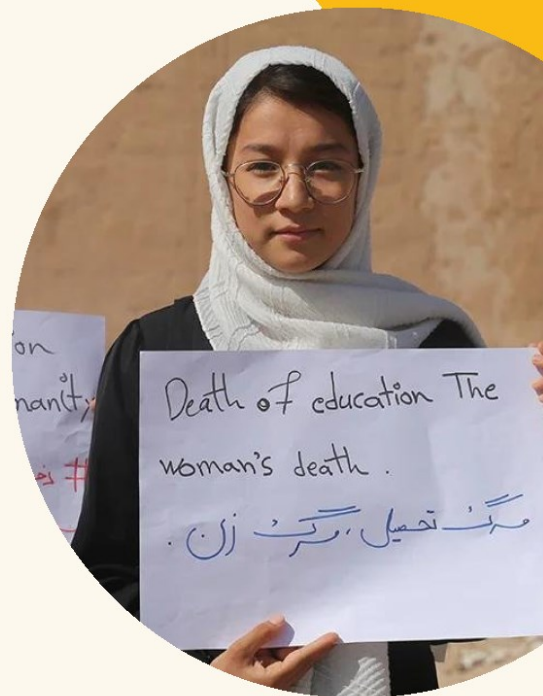 on
Death of education The
woman's death .
مرگ تحصیل، مرگ زن .